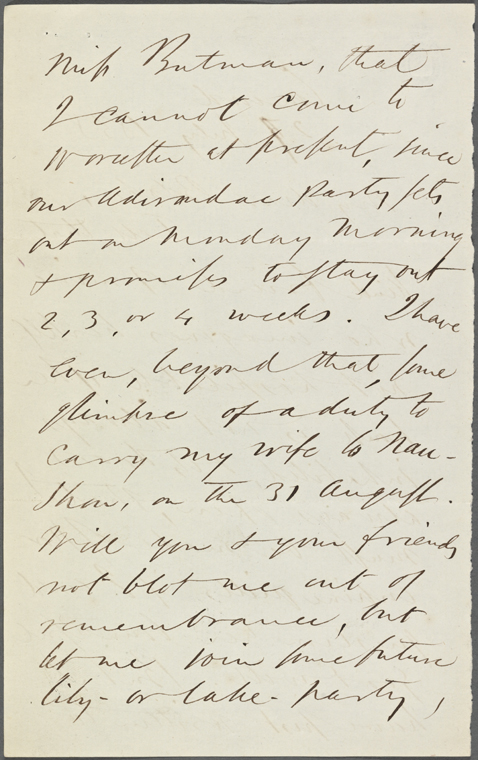 Miss Butman, that
I cannot come to
Worcester at present, since
our Adirondac party sets
out on Monday Morning
& promises to stay out
2, 3, or 4 weeks. I have
even, beyond that, some
glimpse of a duty to
carry my wife to Nau-
shon, on the 31 August.
Will you & your friends
not blot me out of
remembrance, but
let me join some future
lily- or lake- party,